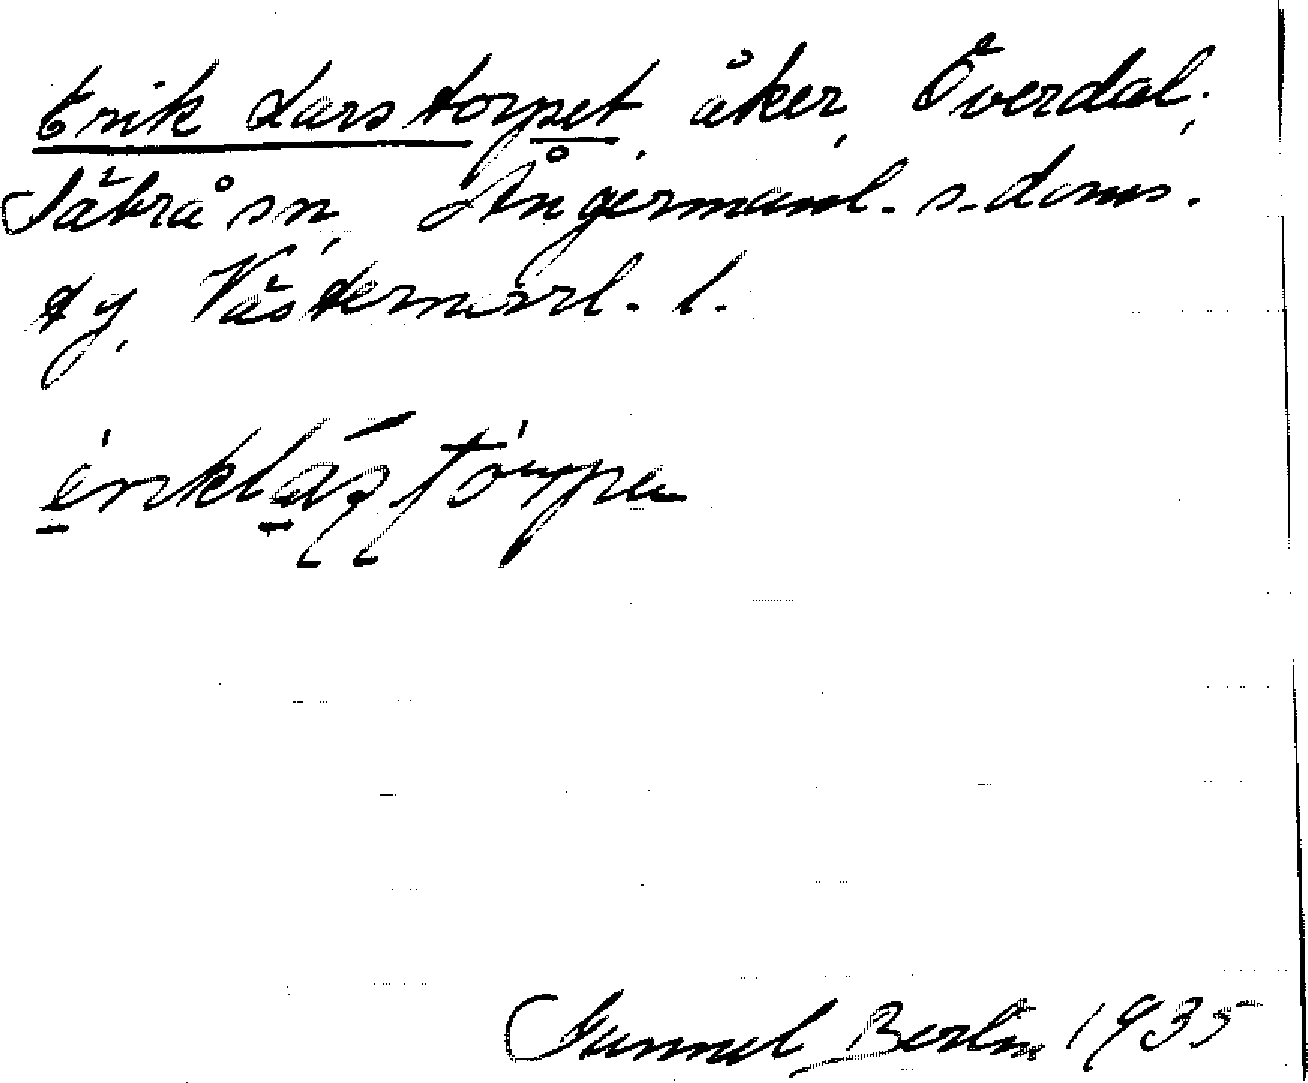 Erik Larstorpet, åker, Överdal,
Säbrå sn, Ångermanl. s. doms.
tg, Västernorrl. l.
Gunnel Berlin 1935